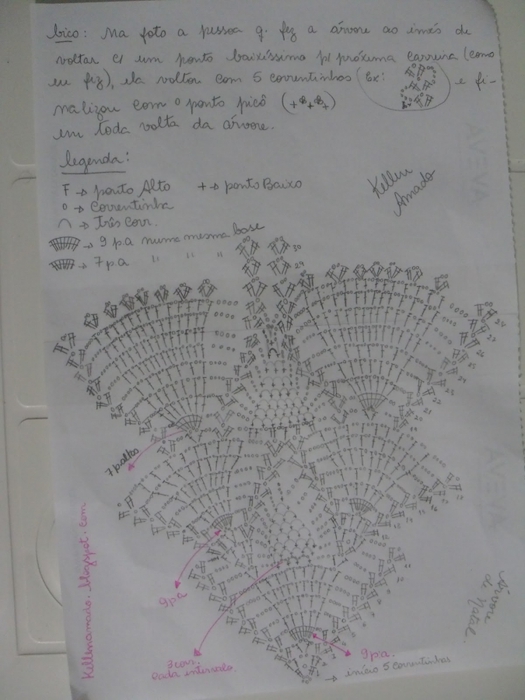 bico: Na foto a pessoa q. fez a árvore ao invés de
voltar c/ um ponto baixíssimo p/ próxima carreira (como
eu fiz), ela voltou com 5 correntinhas (Ex: ) e fi-
nalizou com o ponto picô (+ + +)
em toda volta da árvore.
legenda:
F → ponto Alto + → ponto Baixo
o → correntinha
⌒ → Três corr.
→ 9 p a numa mesma base
→ 7 p a " " "
Kellen
Amado
30
29
7 paltos
9pa
3 corr.
cada intervalo
9pa.
→ início 5 correntinhas
Árvore
de Natal
AVEVA
AVEVA